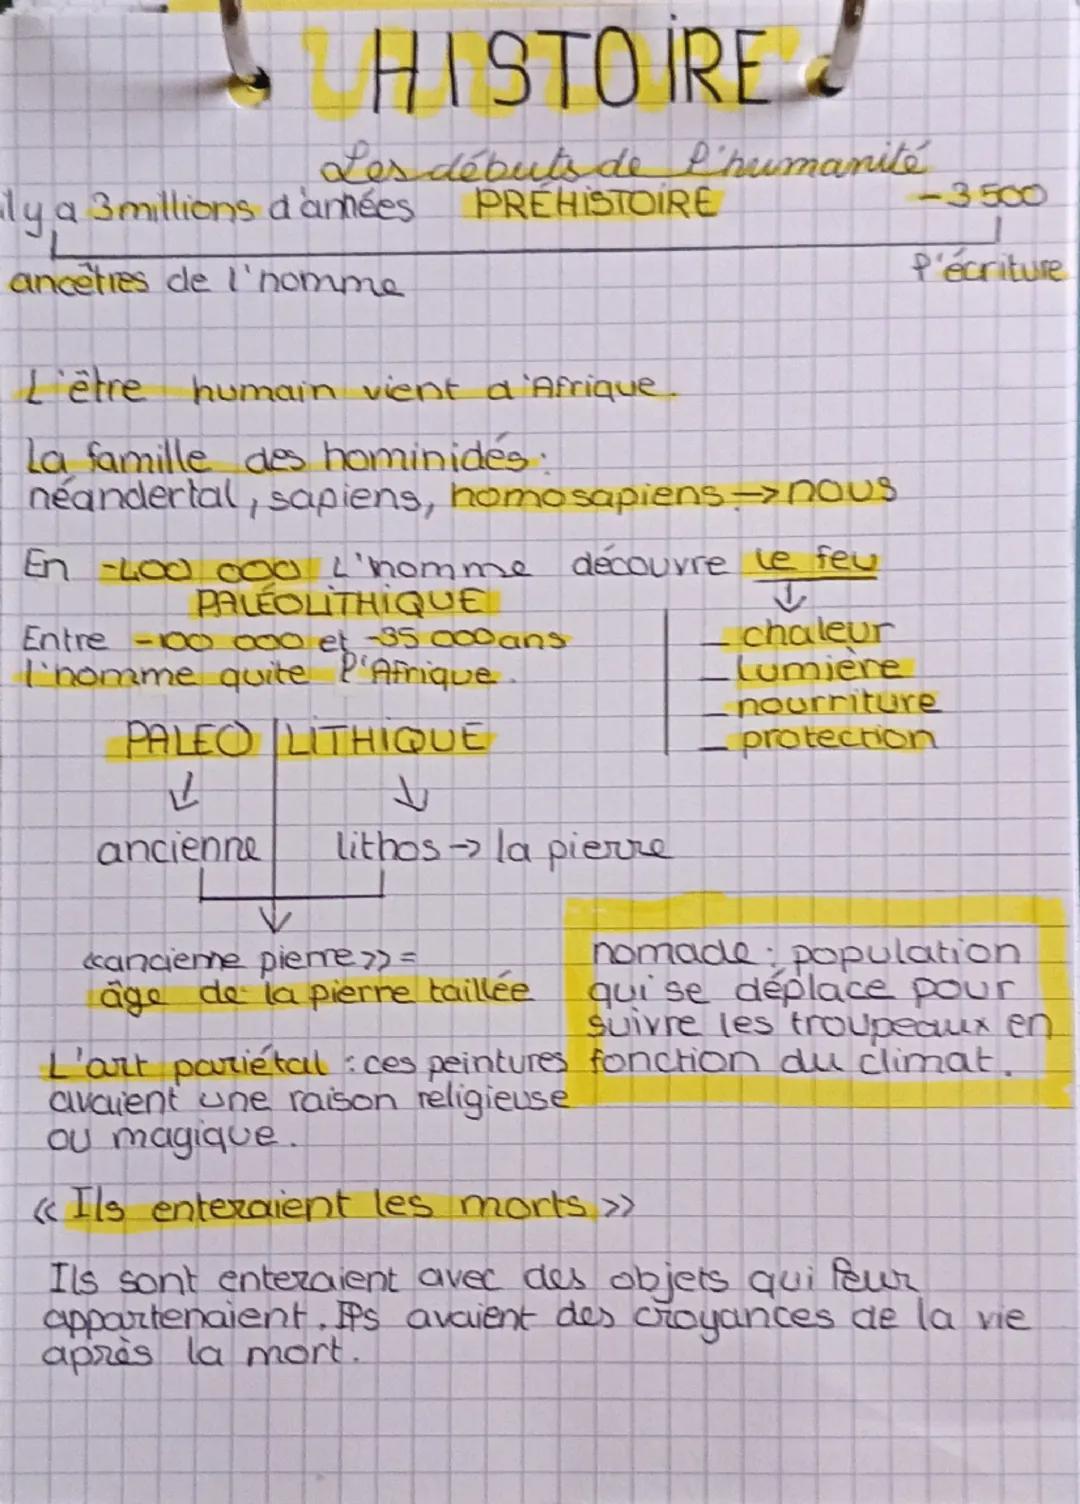 HISTOIRE
Les débuts de l'humanité
il y a 3 millions d'années PRÉHISTOIRE -3500
ancêtres de l'homme l'écriture
L'être humain vient d'Afrique.
La famille des hominidés :
néandertal, sapiens, homosapiens → nous
En -400 000 L'homme découvre le feu
PALÉOLITHIQUE ↓
Entre -100 000 et -35 000 ans
l'homme quite l'Afrique.
- chaleur
- Lumière
- nourriture
- protection
PALEO | LITHIQUE
↓ ↓
ancienne lithos → la pierre
↓
«ancienne pierre» =
âge de la pierre taillée
nomade : population
qui se déplace pour
suivre les troupeaux en
fonction du climat.
L'art pariétal : ces peintures
avaient une raison religieuse
ou magique.
« Ils enteraient les morts »
Ils sont enteraient avec des objets qui leur
appartenaient. Ils avaient des croyances de la vie
après la mort.